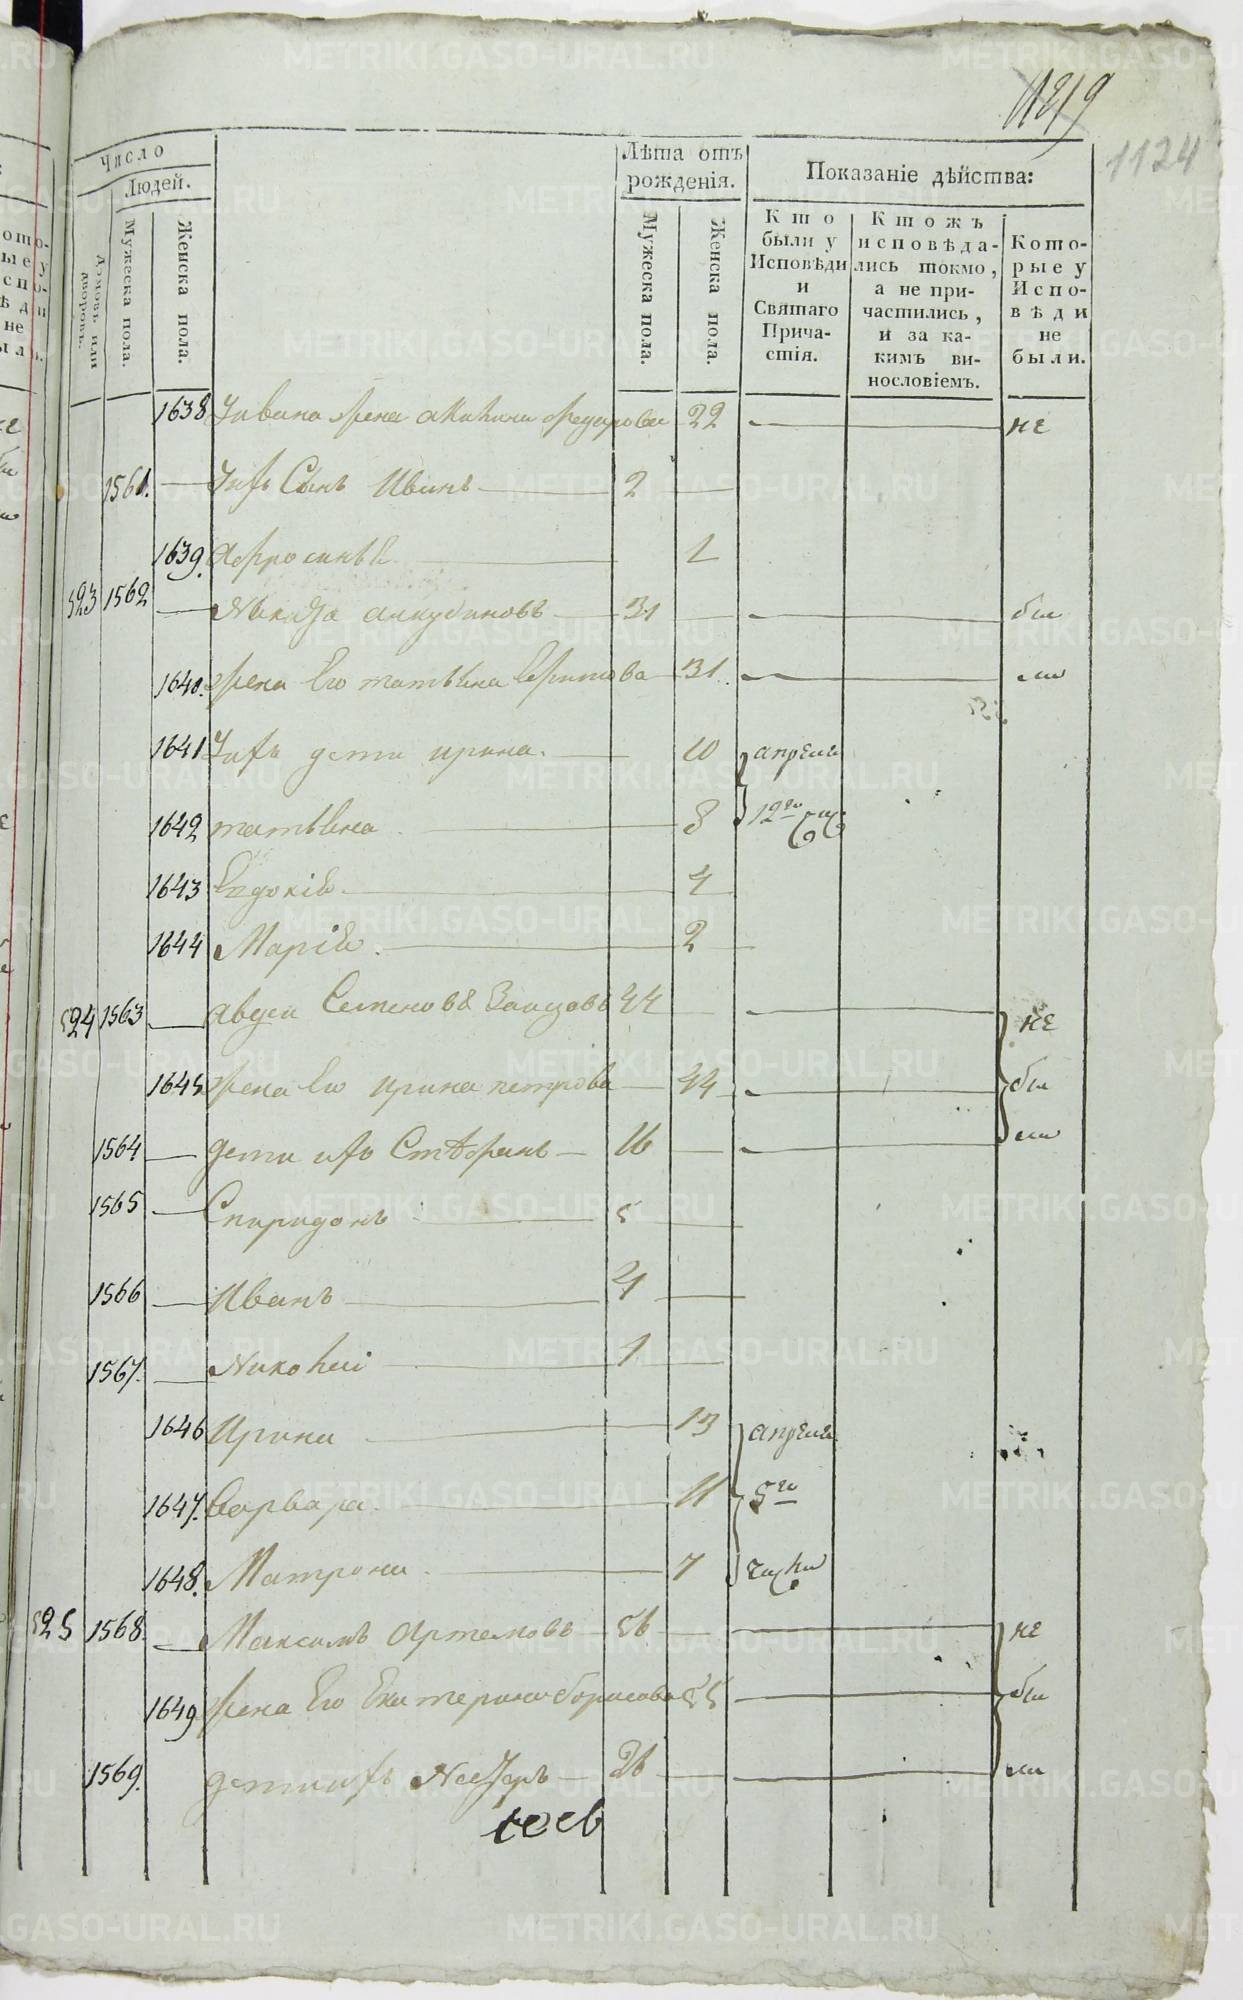 1219
1124
Число
Людей.
Домовъ или дворовъ.
Мужеска пола.
Женска пола.
Лѣта отъ рожденія.
Мужеска пола.
Женска пола.
Показаніе дѣйства:
Кто были у Исповѣди и Святаго Причастія.
Ктожъ исповѣдались токмо, а не причастились, и за какимъ винословіемъ.
Которые у Исповѣди не были.
1638 Ивана жена акилина федорова 22 не
1561. Ихъ Сынъ Иванъ 2
1639. Афросинья 1
523 1562 Никита анкудиновъ 31 бы
1640. жена Его татьяна Ефимова 31 ли
1641 Ихъ дети ирина. 10 апреля
1642 татьяна 8 12го
1643 Евдокія 4
1644 Марія. 2
524 1563 авдей Семеновъ Заицовъ 44 не
1645 жена Его ирина петрова 44 бы
1564 дети ихъ Стефанъ 16 ли
1565 Спиридонъ 5
1566 Иванъ 4
1567. Николай 1
1646 Ирина 13 апреля
1647. Варвара. 11 5го
1648. Матрона. 7 числа
525 1568. Максимъ Артемовъ 56 не
1649 жена Его Екатерина борисова 55 бы
1569. дети ихъ Несторъ 26 ли
METRIKI.GASO-URAL.RU